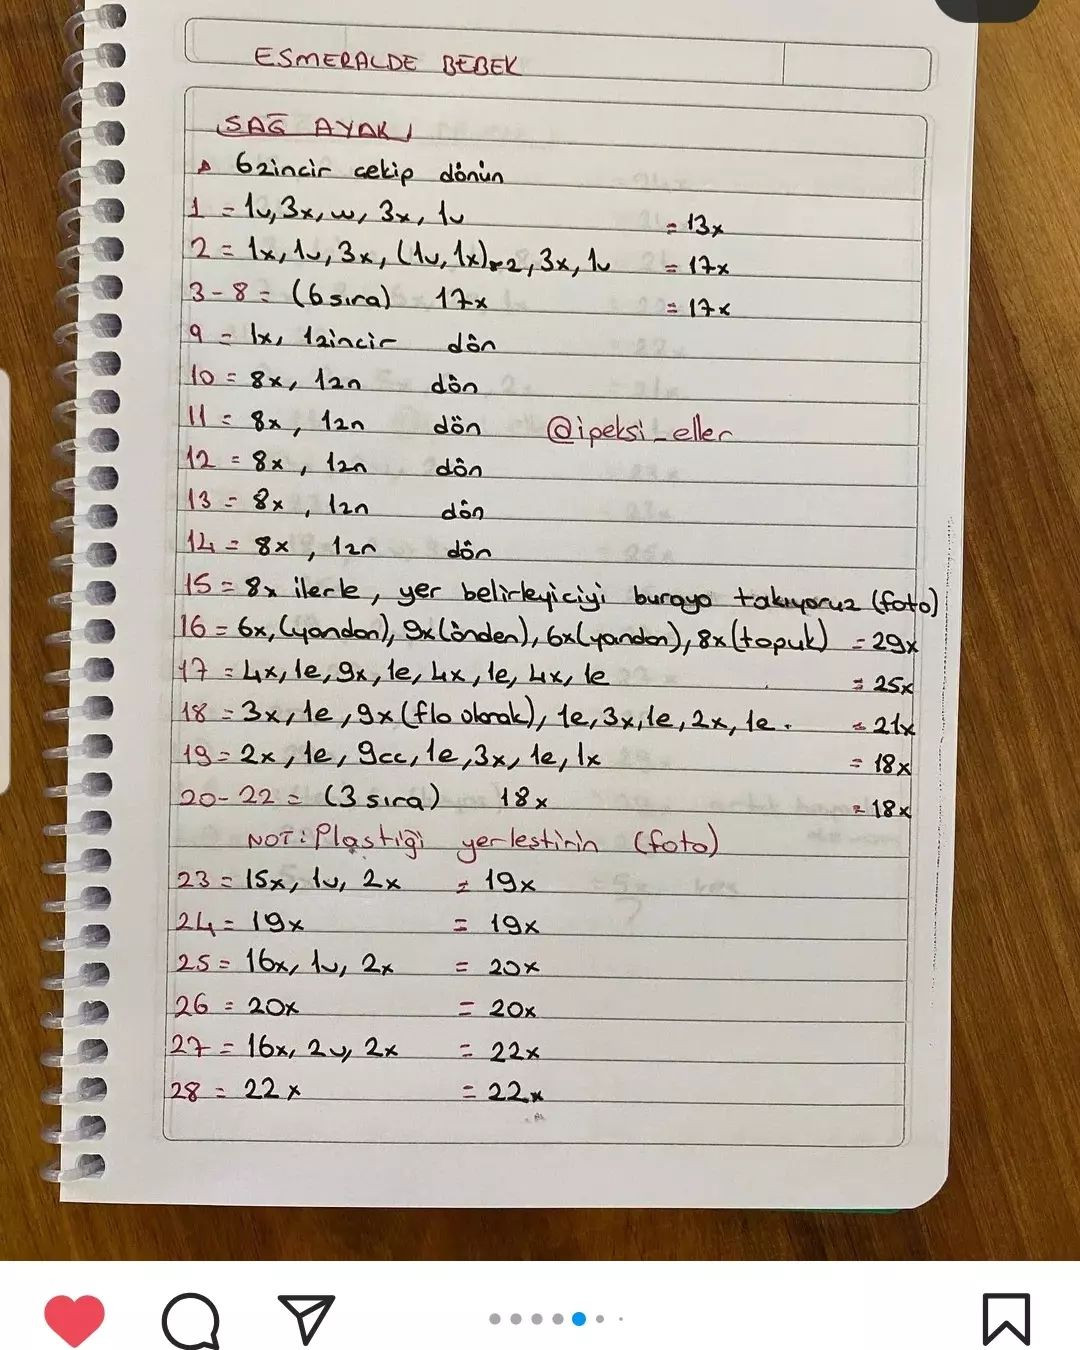 ESMERALDE BEBEK
SAĞ AYAK
6zincir cekip dönün
1 = 1v, 3x, w, 3x, 1v = 13x
2 = 1x, 1v, 3x, (1v, 1x)x2, 3x, 1v = 17x
3-8 = (6 sıra) 17x = 17x
9 = 1x, 1zincir dön
10 = 8x, 1zn dön
11 = 8x, 1zn dön @ipeksi_eller
12 = 8x, 1zn dön
13 = 8x, 1zn dön
14 = 8x, 1zn dön
15 = 8x ilerle, yer belirleyiciyi buraya takıyoruz (foto)
16 = 6x, (yandan), 9x (önden), 6x (yandan), 8x (topuk) = 29x
17 = 4x, 1e, 9x, 1e, 4x, 1e, 4x, 1e = 25x
18 = 3x, 1e, 9x (flo olarak), 1e, 3x, 1e, 2x, 1e. = 21x
19 = 2x, 1e, 9cc, 1e, 3x, 1e, 1x = 18x
20-22 = (3 sıra) 18x = 18x
NOT: Plastiği yerleştirin (foto)
23 = 15x, 1v, 2x = 19x
24 = 19x = 19x
25 = 16x, 1v, 2x = 20x
26 = 20x = 20x
27 = 16x, 2v, 2x = 22x
28 = 22x = 22x